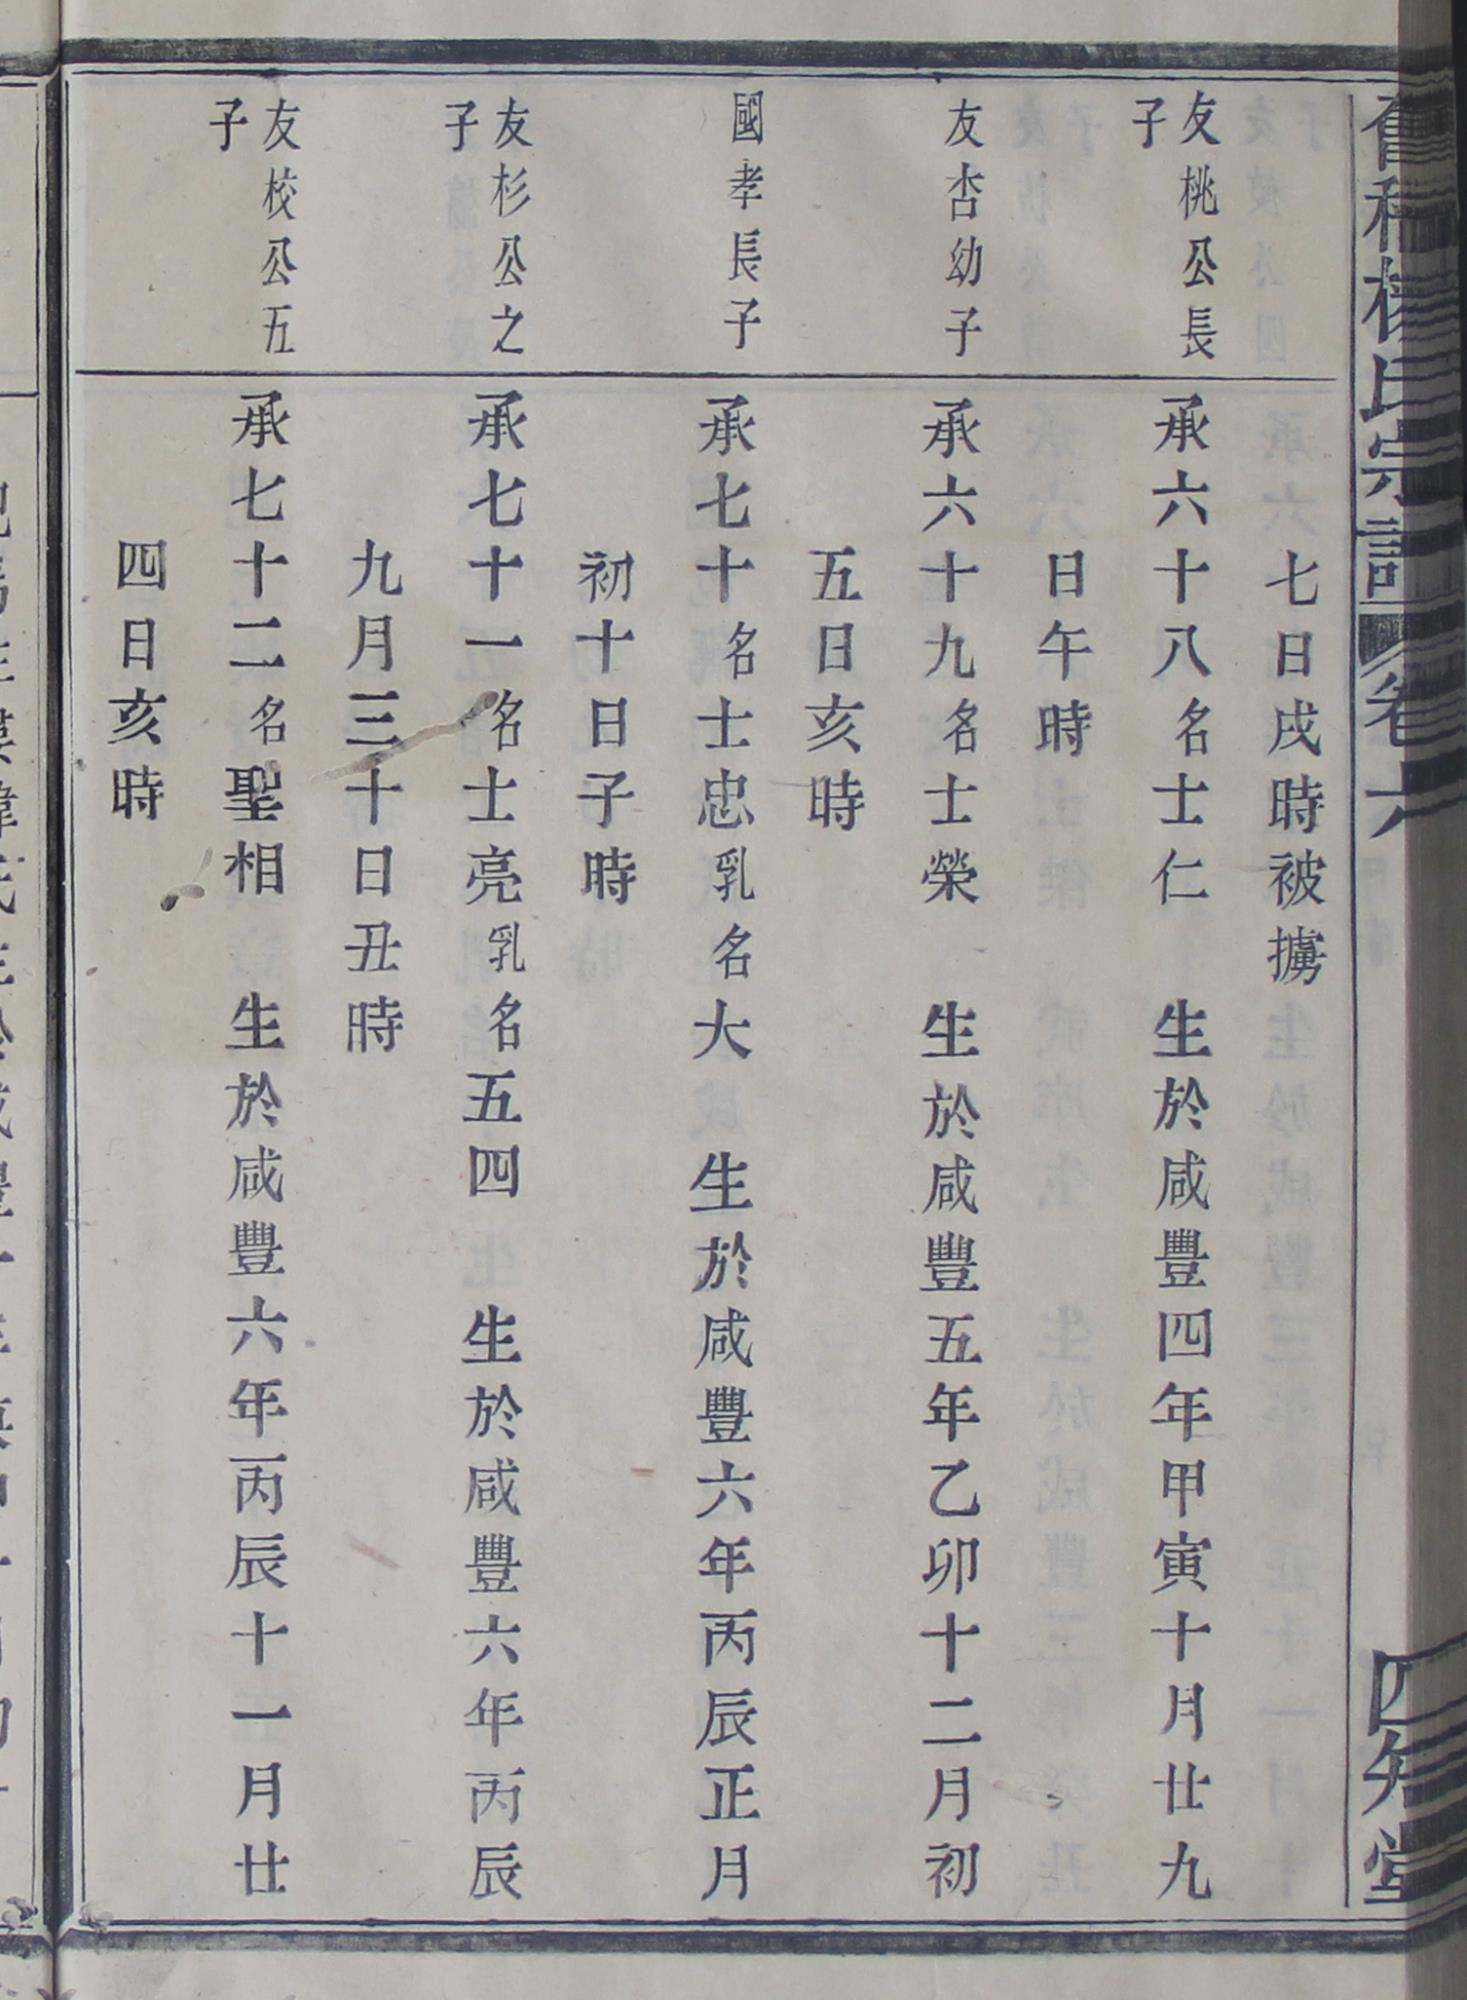 楊氏宗譜 卷六 四知堂
七日戌時被擄
友桃公長
子
承六十八名士仁 生於咸豐四年甲寅十月廿九
日午時
友杏幼子
承六十九名士榮 生於咸豐五年乙卯十二月初
五日亥時
國孝長子
承七十名士忠乳名大 生於咸豐六年丙辰正月
初十日子時
友杉公之
子
承七十一名士亮乳名五四 生於咸豐六年丙辰
九月三十日丑時
友校公五
子
承七十二名聖相 生於咸豐六年丙辰十一月廿
四日亥時